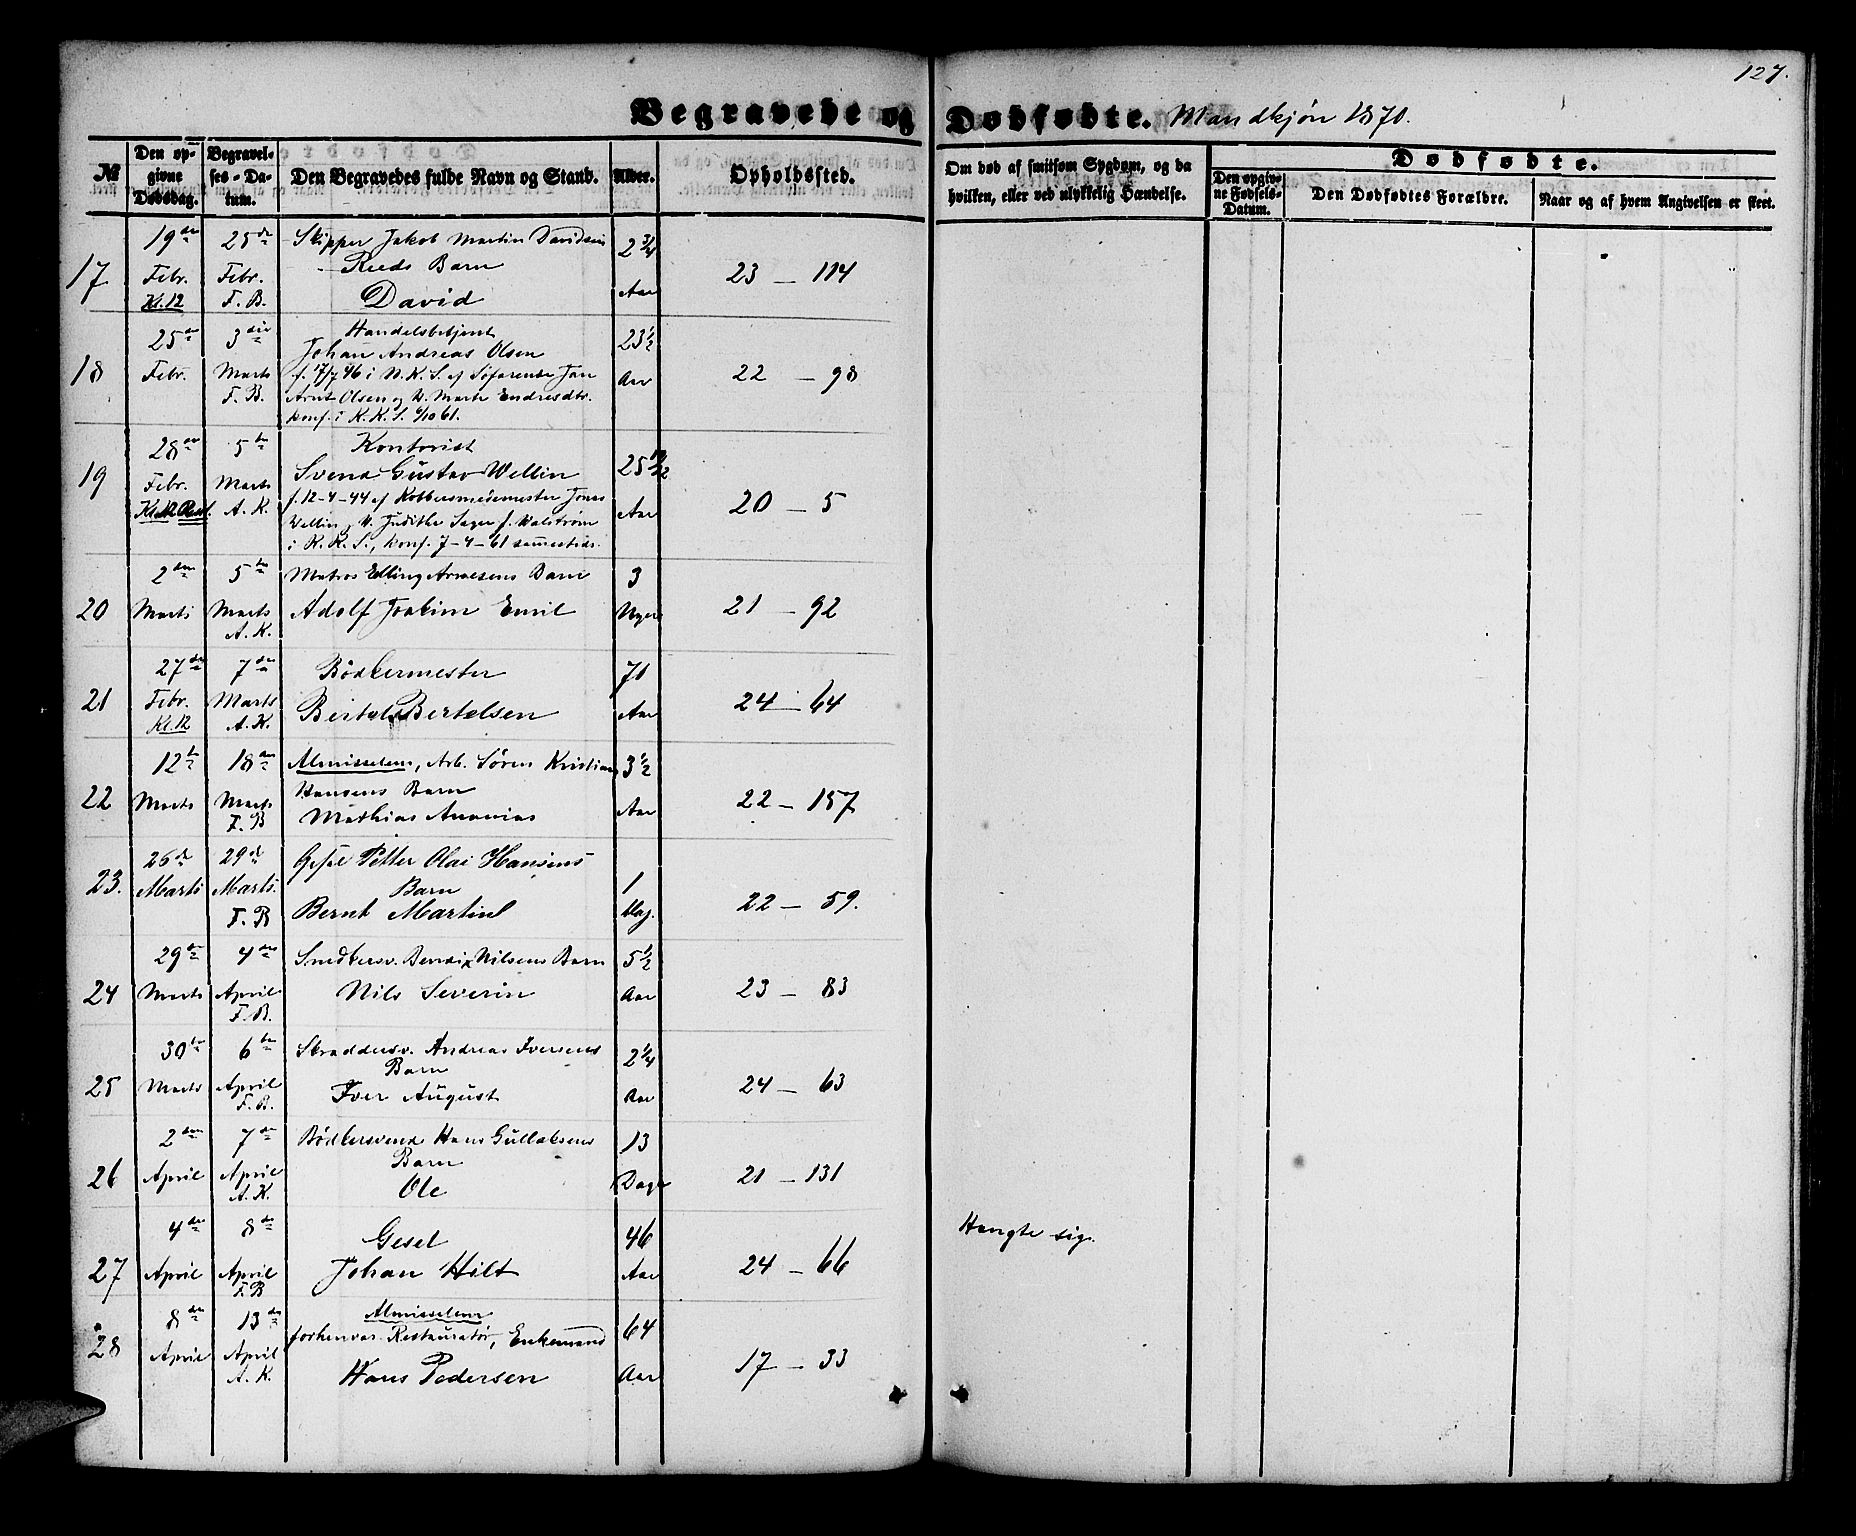 127.
Begravede og Dødfødte. Mandkjøn 1870.
№ Den opgivne Dødsdag. Begravelses-Datum. Den Begravedes fulde Navn og Stand. Alder. Opholdssted. Om død af smitsom Sygdom, og da hvilken, eller ved ulykkelig Hændelse. Dødfødte.
Den opgivne Fødsels-Datum. Den Dødfødtes Forældre. Naar og af hvem Angivelsen er skeet.
19de 25de Skipper Jakob Martin Davidsen 2 3/4
17 Febr. Febr. Reeds Barn 23 – 114
Kl. 12 F. B. David Aar
25de 3die Handelsbetjent 23 1/2
Johan Andreas Olsen
18 Febr. Marts f. 17/7 46 i N. K. S. af Søfarende Jan Aar 22 – 98
F. B. Arnt Olsen og H. Marte Endresdtr.
konf. i K. K. S. 6/10 61.
28de 5te Kontorist
Svend Gustav Wellin 25 10/12
19 Febr. Marts f. 12-4-44 af Kobbersmedemester Jonas 20 – 5
A. K. Wellin og H. Judithe Sager f. Walstrøm Aar
i K. K. S., konf. 7-4-61 sammesteds.
2den 5te Matros Edling Arnesens Barn 3
20 Marts Marts Adolf Joakim Emil Uger 21 – 92
A. K.
27de 7de Bødkermester 71
21 Febr. Marts Bertel Bertelsen Aar 24 – 64
Kl. 12 A. K.
12te 18de Almisselem, Arb. Søren Kristian 3 1/2
22 Marts Marts Hansens Barn Aar 22 – 157
F. B Mathias Ananias
26d 29d Gesel Petter Olai Hansens
23. Marts Marts. Barn 1 22 – 59.
F. B Bernt Martinl
29de 4de Snedkersv. Bendix Nilsens Barn 5 1/2
24 Marts April Nils Severin Aar 23 – 83
F. B.
30te 6te Skræddersv. Andreas Iversens 2 1/4
Barn
25 Marts April Iver August Aar 24 – 63
F. B.
2den 7de Bødkersvend Hans Gullaksens 13
Barn
26 April April Ole Dage 21 – 131
A. K.
4de 8de Gesel 46 Hængte sig.
27 April April Johan Hilt Aar 24 – 66
F. B
8de 13de Almisselem
28 April April forhenvær. Restauratør, Enkemand 64 17 – 33
A. K. Hans Pedersen Aar